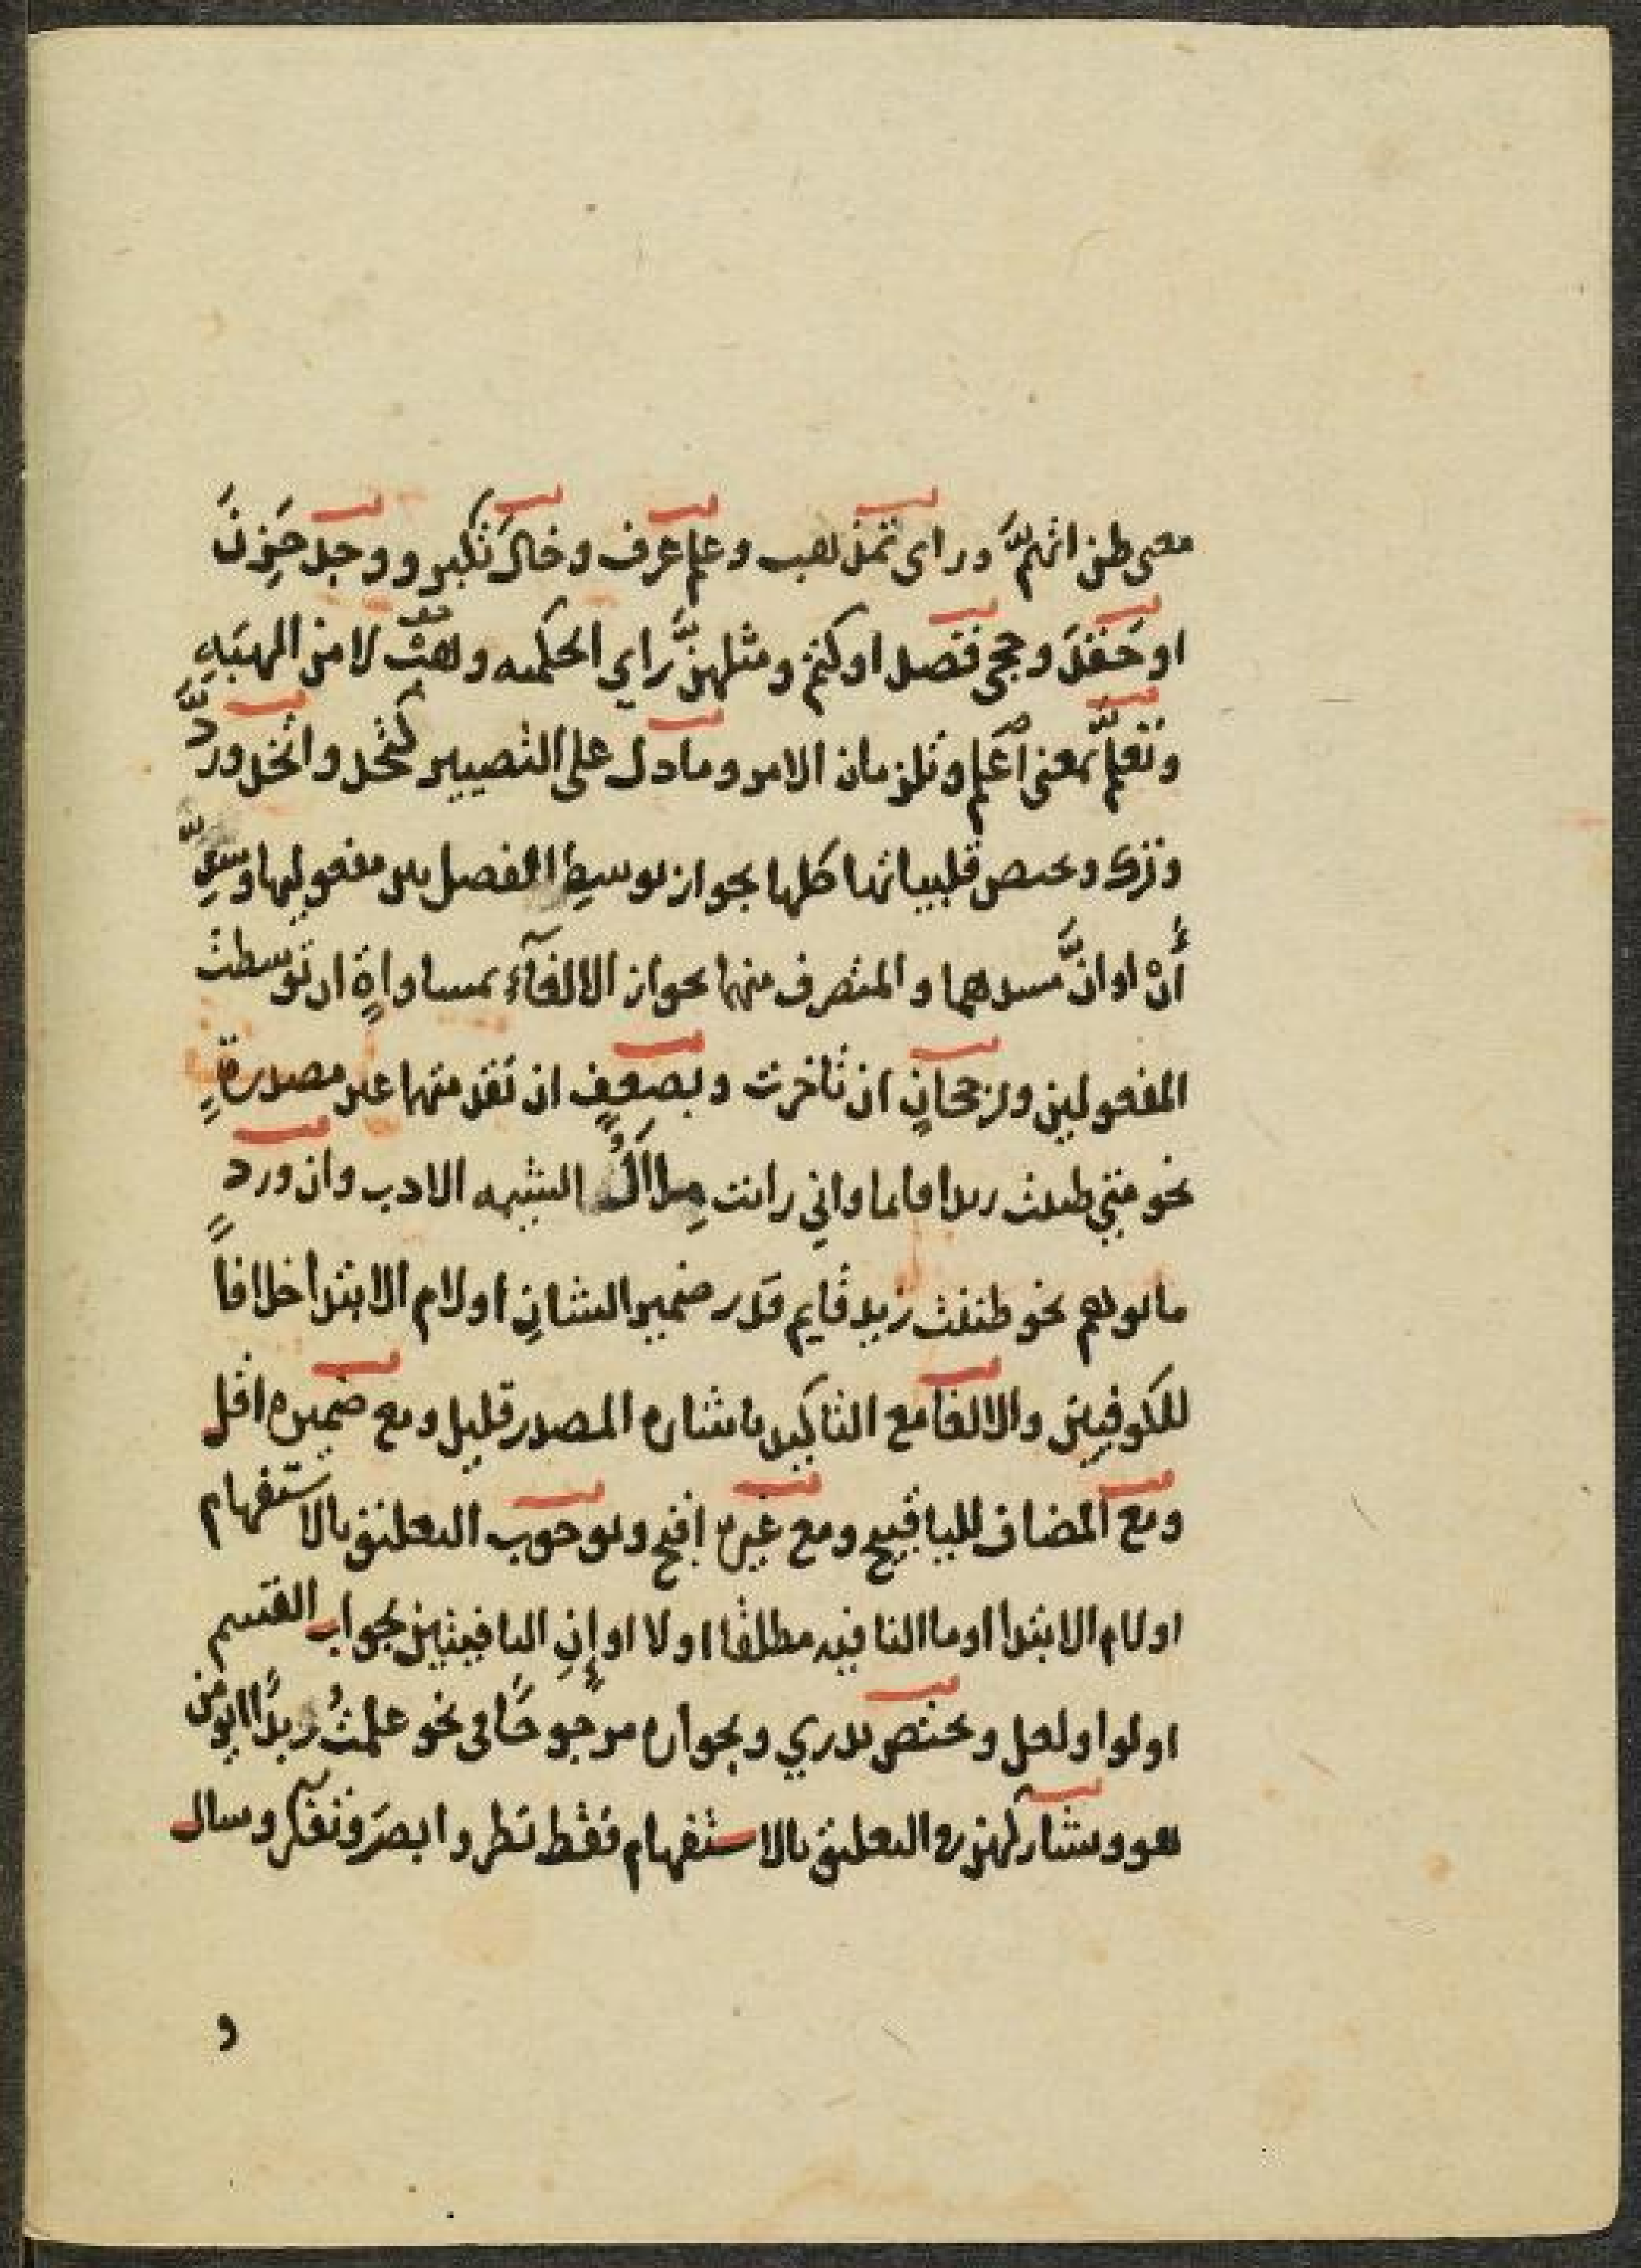 معنى ظن اتهم ورأى تمذهب وعلم عرف وخال تكبر ووجد حَزِنَ
او حَقَدَ وحجى قصد او كتم ومثلهنَّ راى الحلميه وهَبْ لا من الهيبه
وتعلّم بمعنى اعلم وتلزمان الامر وما دل على التصيير كتخذ واتخذ وردَّ
وترك وتختص قلبياتها كلها بجواز توسط الفصل بين مفعوليها وسدِّ
أنْ او انَّ مسدهما والمتصرف منها بجواز الالغآء بمساواةٍ ان توسطت
المفعولين ورجحانٍ ان تاخرت وبضعفٍ ان تقدمتها غير مصدرةٍ
نحو متى ظننت زيدا قائما واني رايت مِلَاكُ الشيمه الادب وان ورد
ما يوهم نحو ظننت زيد قايم قدر ضمير الشانِ او لام الابتدا خلافاً
للكوفيين والالغا مع التاكيد باشاره المصدر قليل ومع ضميره اقل
ومع المضاف لليا قبيح ومع غيره اقبح وبوجوب التعليق بالاستفهام
او لام الابتدا او ما النافيه مطلقا او لا او إنِ النافيتين بجواب القسم
او لو او لعل ويختص بدري وبجوازه مرجوحًا في نحو علمتُ زيدًا ابو من
هو وتشاركهن في التعليق بالاستفهام فقط نظر وابصَر وتفكر وسال
و